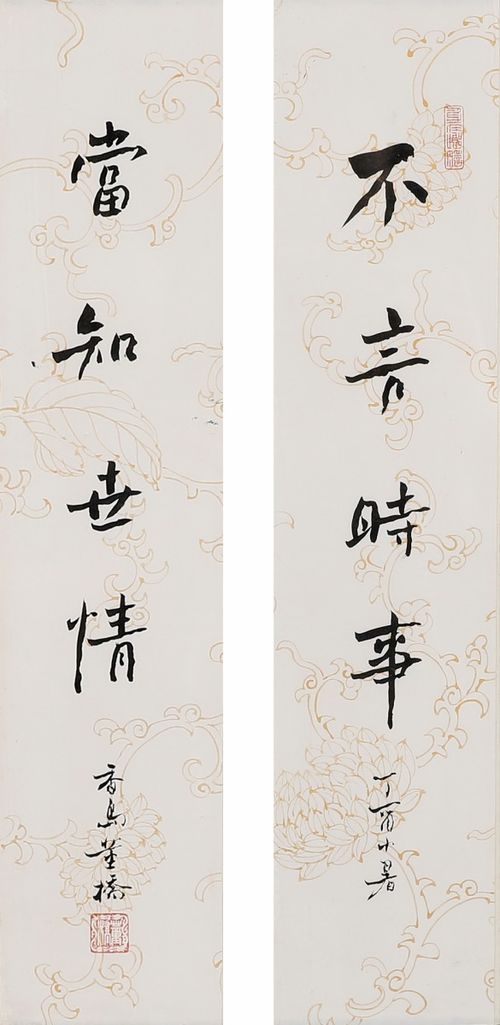 不言時事
丁酉小暑
當知世情
香島董橋